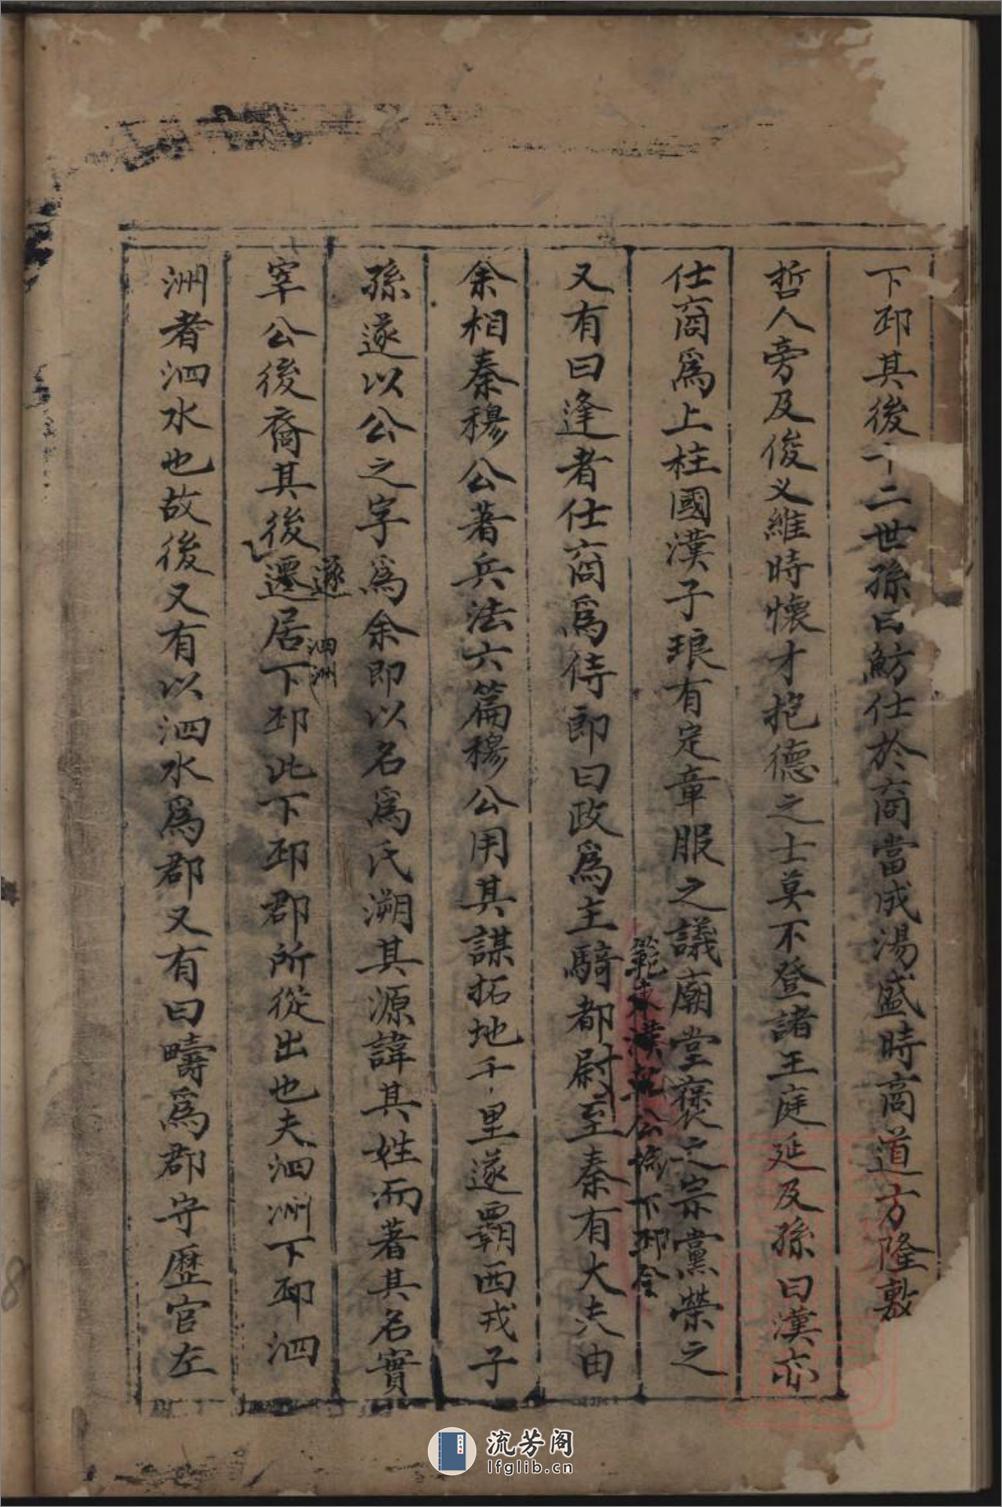 下邳其後十二世孫曰魴仕於商當成湯盛時商道方隆敷
哲人旁及俊乂維時懷才抱德之士莫不登諸王庭延及孫曰漢亦
仕商爲上柱國漢子琅有定章服之議廟堂褒之宗黨榮之
又有曰逢者仕商爲侍郎曰政爲主騎都尉至秦有大夫由
余相秦穆公著兵法六篇穆公用其謀拓地千里遂霸西戎子
孫遂以公之字爲余即以名爲氏溯其源諱其姓而著其名實
宰公後裔其後遷居下邳此下邳郡所從出也夫泗洲下邳泗
遂
泗洲
洲者泗水也故後又有以泗水爲郡又有曰疇爲郡守歷官左
流芳阁
lfglib.cn